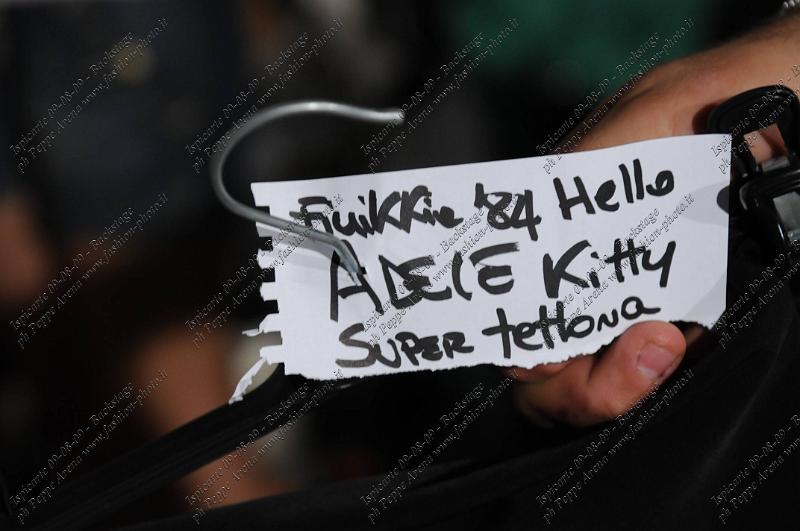 Fiuikkie '84 Hello
ADELE Kitty
SUPER tettona
Ispicarte 09-08-09 - Backstage
ph Peppe Arena www.fashion-photo.it